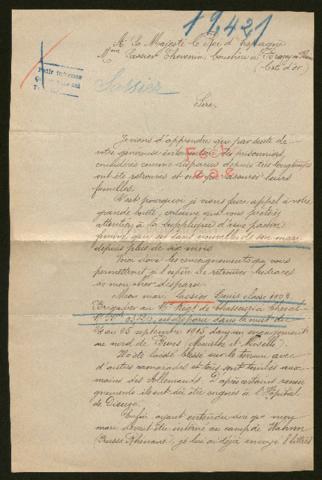 19421
A Sa Majesté le Roi d'Espagne
Mme Sassier Thevenin, Couchois, à
(Côte d'Or)
Sassier
Sire,
Je viens d'apprendre que par suite de
votre généreuse intervention des prisonniers,
considérés comme disparus depuis très longtemps
ont été retrouvés et ont pu rassurer leurs
familles.
C'est pourquoi je viens faire appel à votre
grande bonté, certaine que vous prêterez
attention à la supplique d'une pauvre
femme qui est sans nouvelle de son mari
depuis plus de mois.
Voici Sire les renseignements qui vous
permettront je l'espère de retrouver les traces
de mon cher disparu.
Mon mari Sassier Louis classe 1904
Brigadier au Régt de Chasseurs à Cheval
disparu dans la nuit du
au 25 septembre 1915 dans un engagement
au nord de (Meurthe et Moselle).
Il a été laissé blessé sur le terrain avec
d'autres camarades et tous sont tombés aux
mains des Allemands. D'après certains rensei-
gnements ils ont dû être soignés à l'Hôpital
de Dieuze.
Enfin ayant entendu dire que mon
mari devait être interné au camp de Hahn
(Prusse Rhénane), je lui ai déjà envoyé 4 lettres